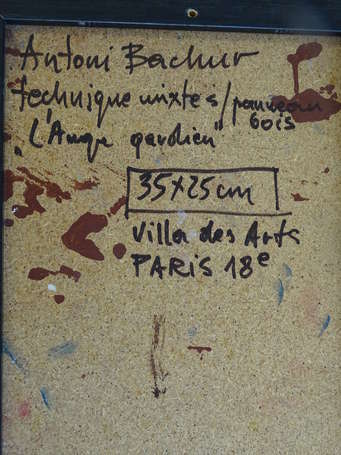 Antoni Bachur
technique mixtes/panneau
bois
„L'Ange gardien"
35x25cm
Villa des Arts
PARIS 18e